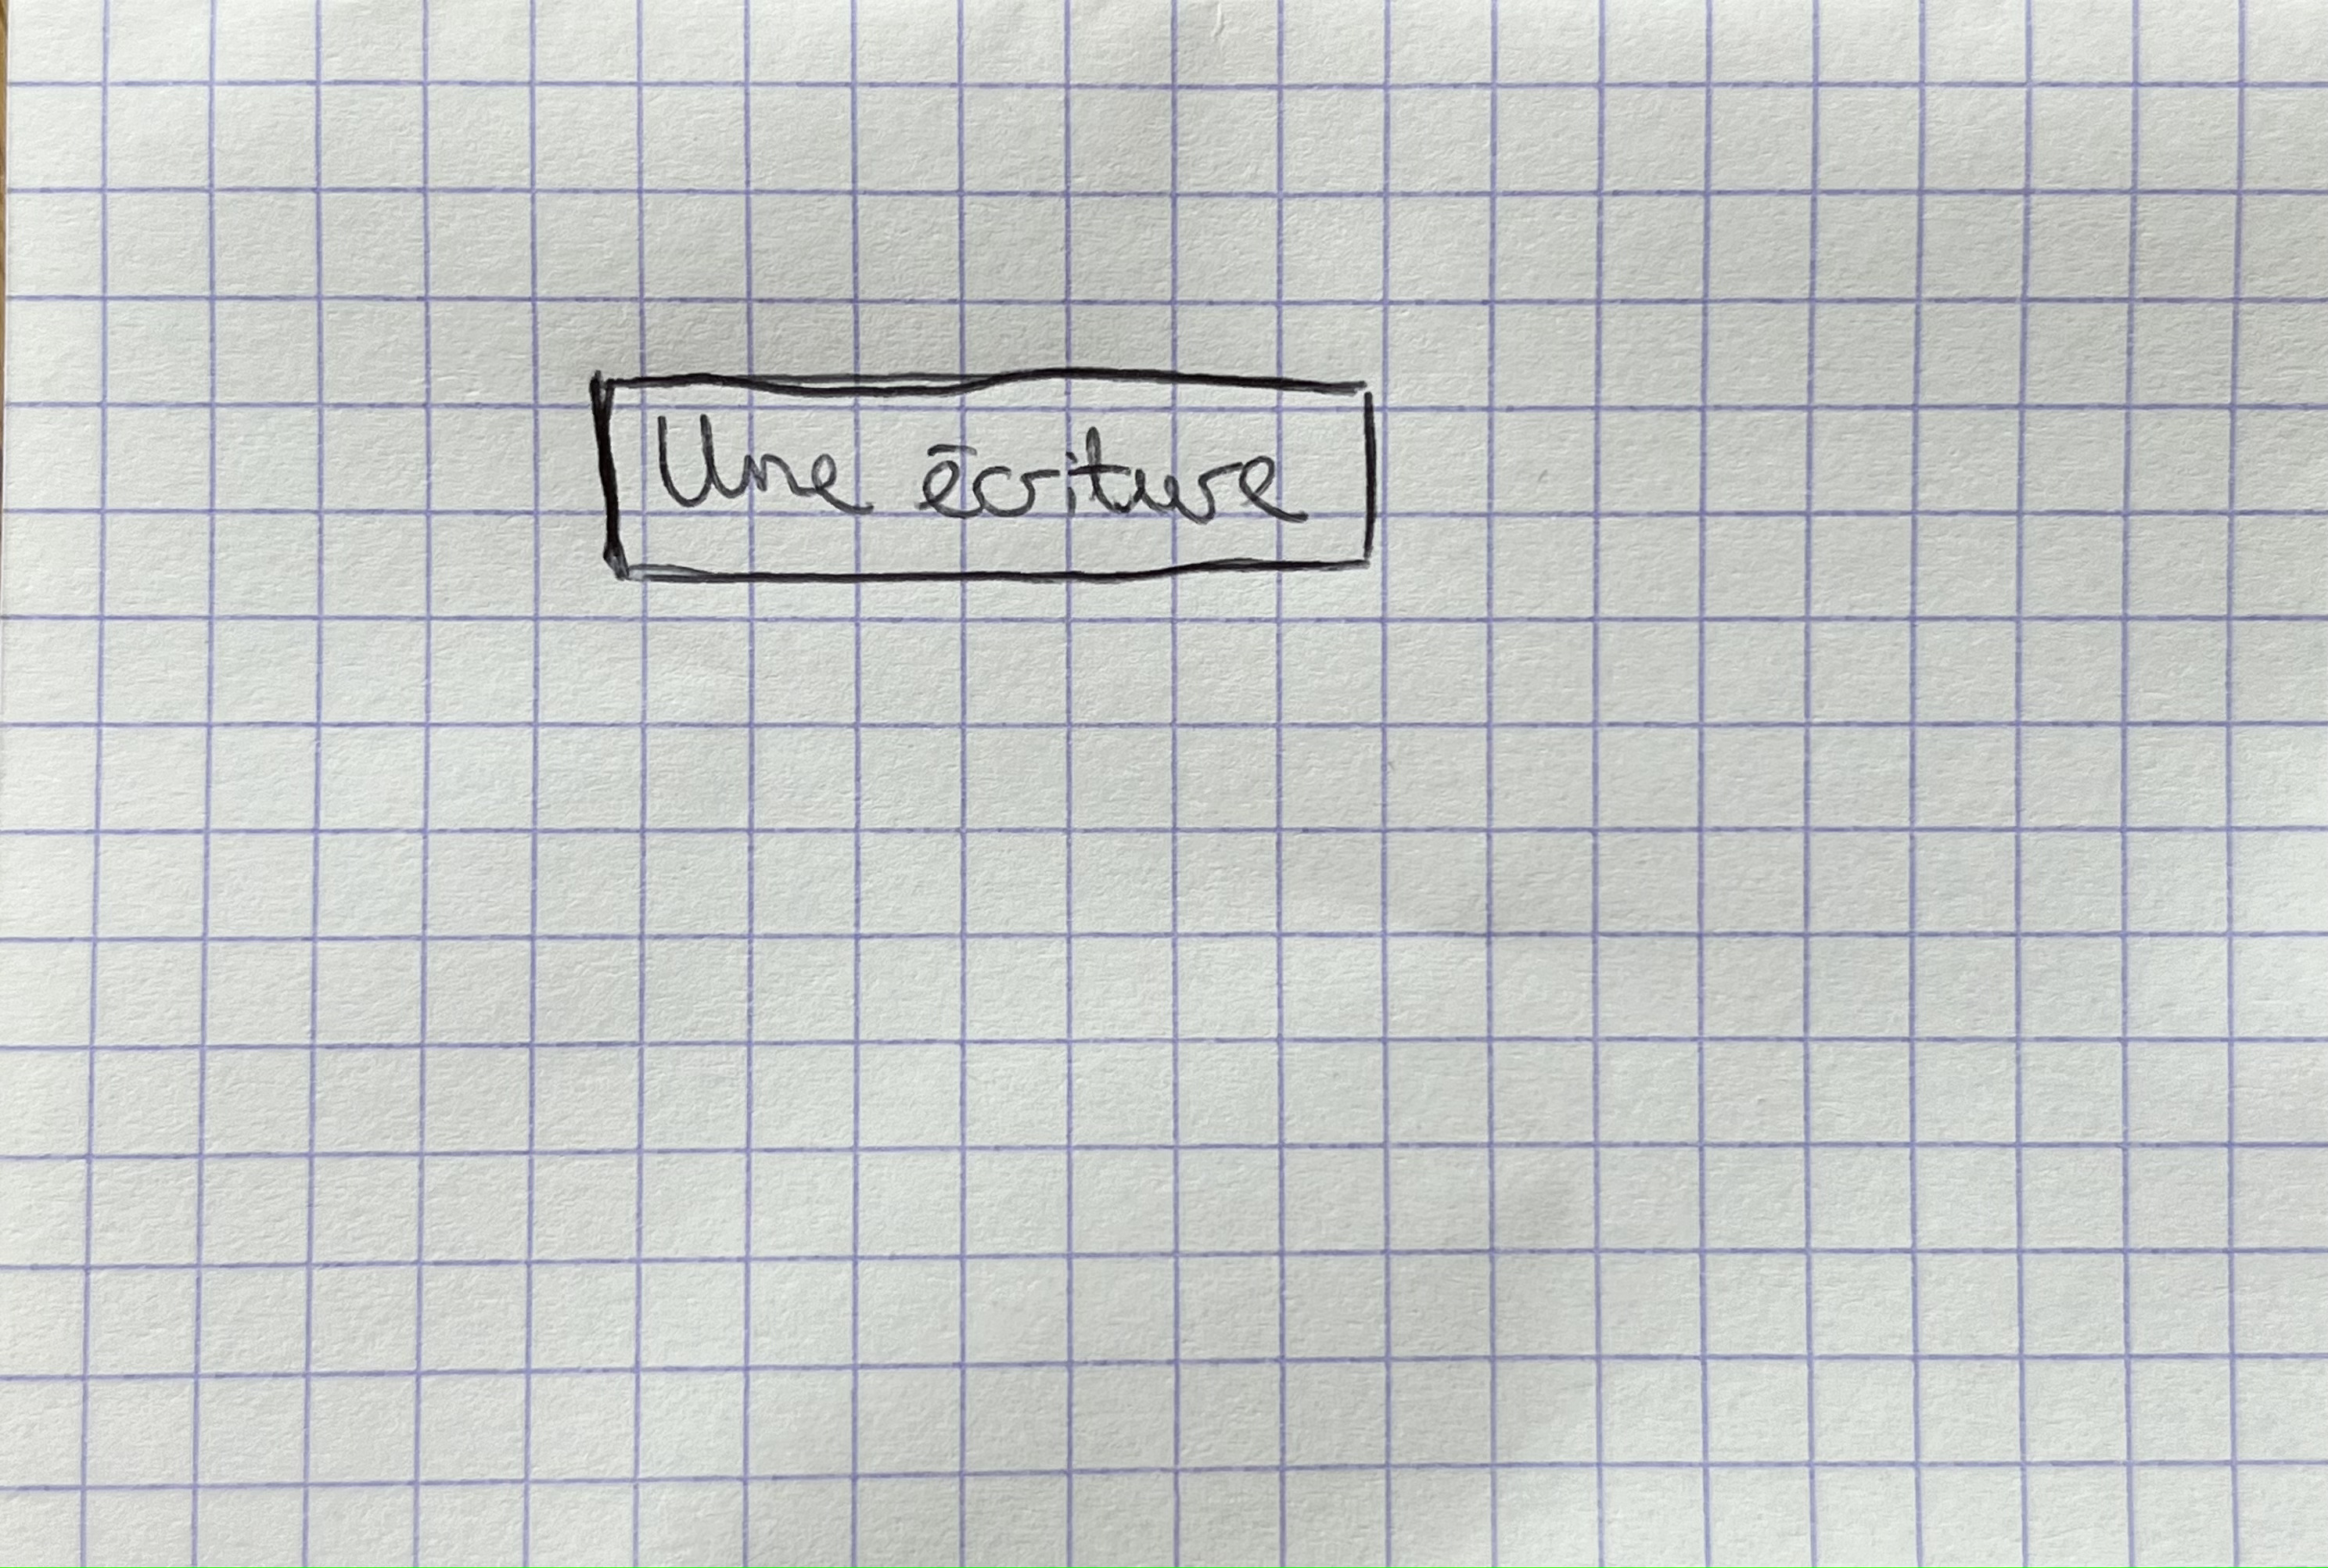 Une écriture